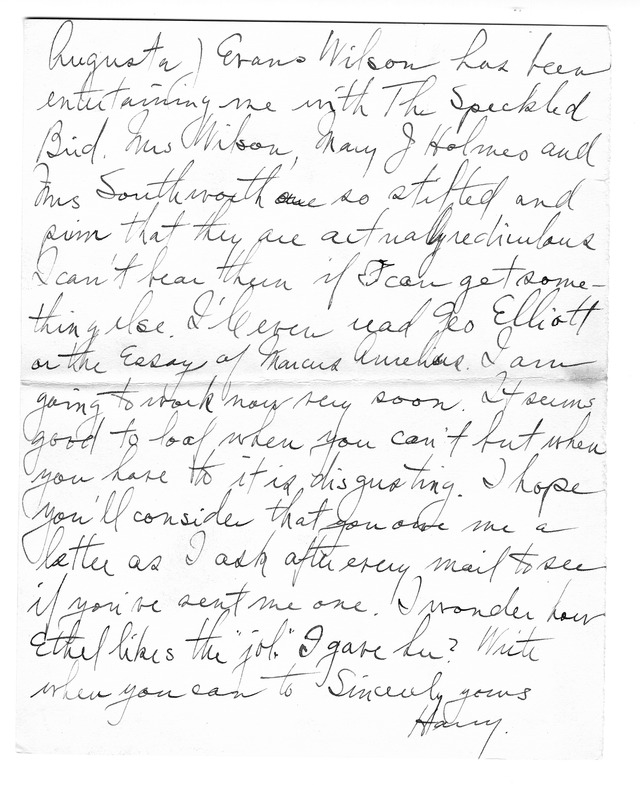 Augusta) Evans Wilson has been
entertaining me with The Speckled
Bird. Mrs Wilson, Mary J Holmes and
Mrs Southworth are so stilted and
prim that they are actually rediculous
I can't bear them if I can get some-
thing else. I'll even read Geo Elliott
or the Essay of Marcus Aurelius. I am
going to work now very soon. It seems
good to loaf when you can't but when
you have to it is disgusting. I hope
you'll consider that you owe me a
letter as I ask after every mail to see
if you've sent me one. I wonder how
Ethel likes the "job" I gave her? Write
when you can to Sincerely yours
Harry.